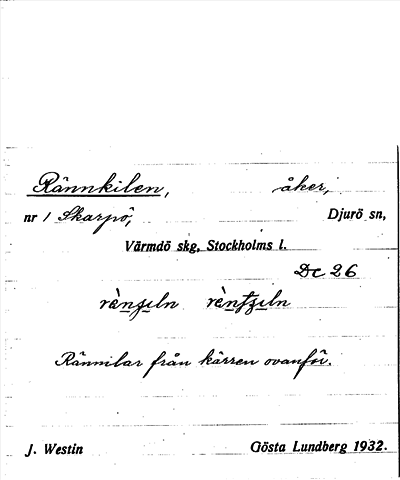 Rännkilen, åker,
nr 1 Skarpö, Djurö sn,
Värmdö skg, Stockholms l.
Dc 26
Rännilar från kärren ovanför.
J. Westin Gösta Lundberg 1932.